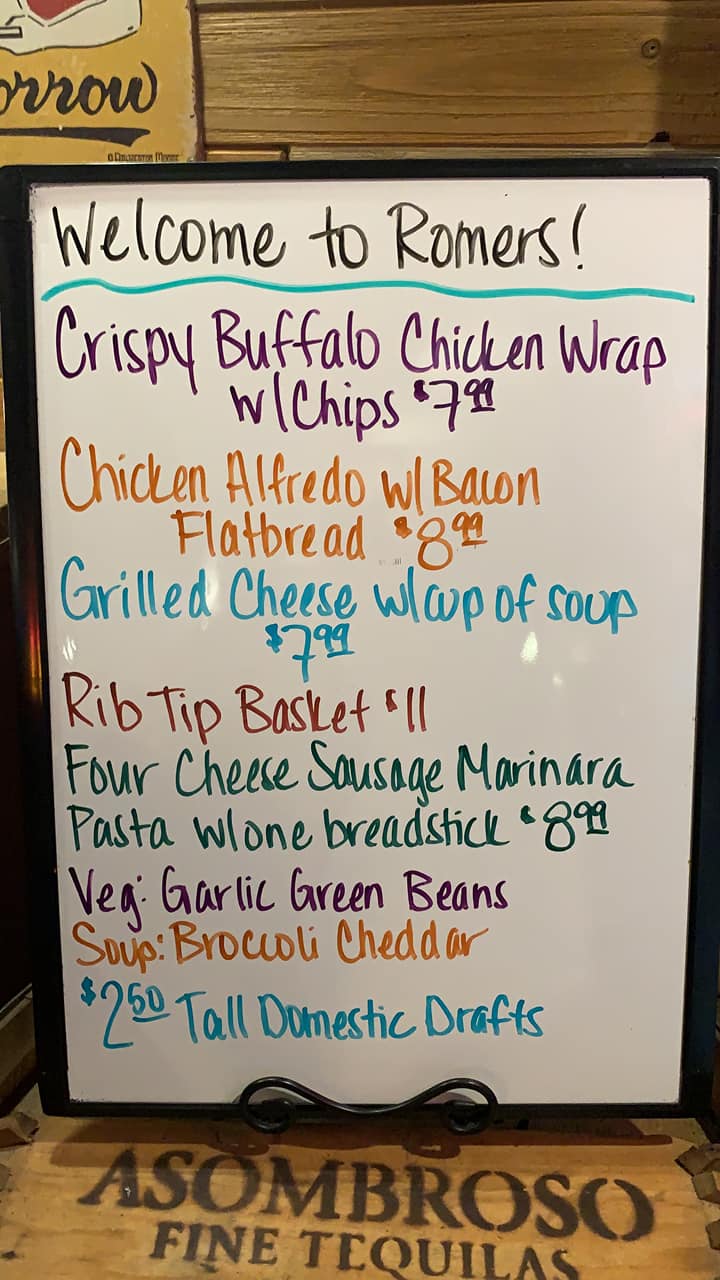 orrow
Welcome to Romers!
Crispy Buffalo Chicken Wrap
w/Chips $7.99
Chicken Alfredo w/Bacon
Flatbread $8.99
Grilled Cheese w/cup of soup
$7.99
Rib Tip Basket $11
Four Cheese Sausage Marinara
Pasta w/one breadstick $8.99
Veg: Garlic Green Beans
Soup: Broccoli Cheddar
$2.50 Tall Domestic Drafts
ASOMBROSO
FINE TEQUILAS